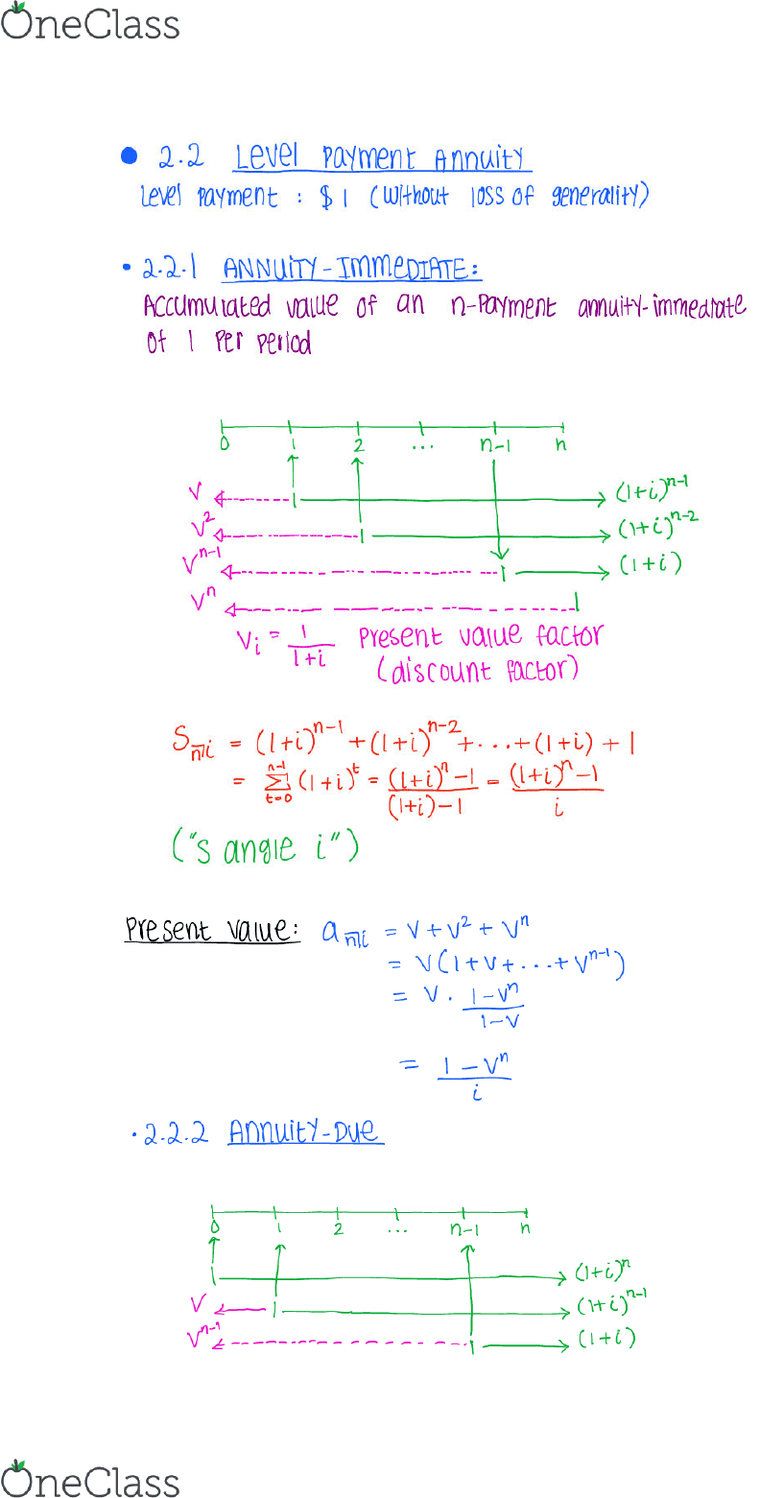 OneClass
• 2.2 Level Payment Annuity
Level Payment : $1 (without loss of generality)
• 2.2.1 Annuity-Immediate:
Accumulated value of an n-Payment annuity-immediate
of 1 Per period
0 1 2 ... n-1 n
v 1 (1+i)^{n-1}
v^2 1 (1+i)^{n-2}
v^{n-1} 1 (1+i)
v^n 1
v_i = \frac{1}{1+i} Present value factor
(discount factor)
S_{\overline{n}|i} = (1+i)^{n-1} + (1+i)^{n-2} + ... + (1+i) + 1
= \sum_{t=0}^{n-1} (1+i)^t = \frac{(1+i)^n - 1}{(1+i) - 1} = \frac{(1+i)^n - 1}{i}
("s angle i")
Present value: a_{\overline{n}|i} = v + v^2 + v^n
= v(1 + v + ... + v^{n-1})
= v · \frac{1-v^n}{1-v}
= \frac{1-v^n}{i}
• 2.2.2 Annuity-Due
0 1 2 ... n-1 n
1 (1+i)^n
v 1 (1+i)^{n-1}
v^{n-1} 1 (1+i)
OneClass